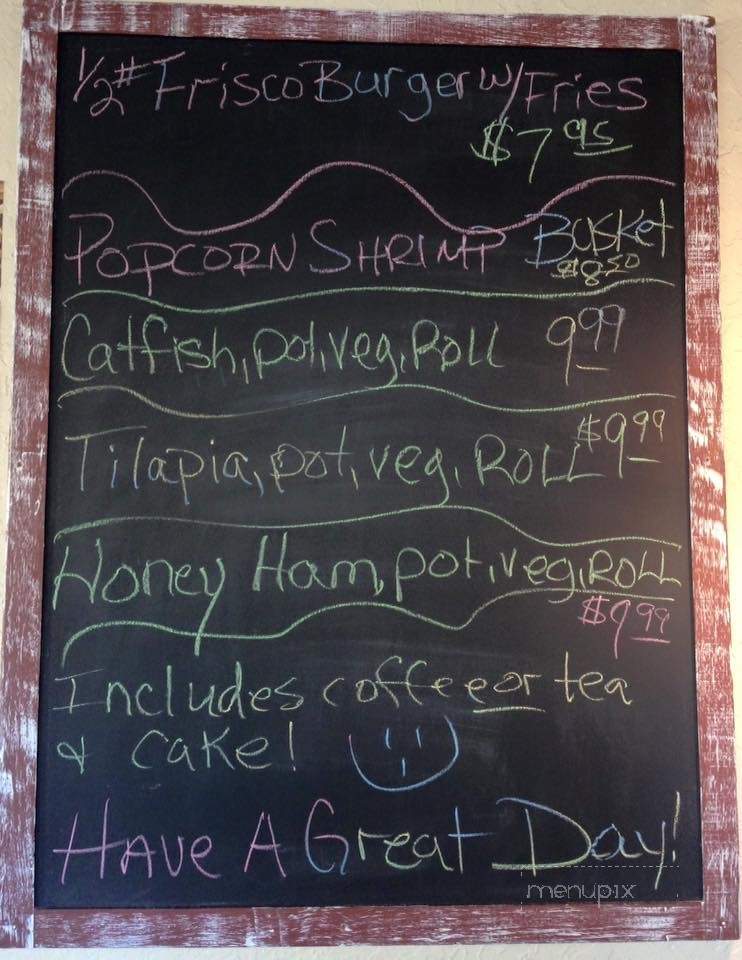 1/2# Frisco Burger w/Fries
$7.95
POPCORN SHRIMP Basket
$8.50
Catfish, pot, veg, Roll 9.99
Tilapia, pot, veg, ROLL $9.99
Honey Ham, pot, veg, ROLL
$9.99
Includes coffee or tea
& cake!
HAVE A Great Day!
menupix